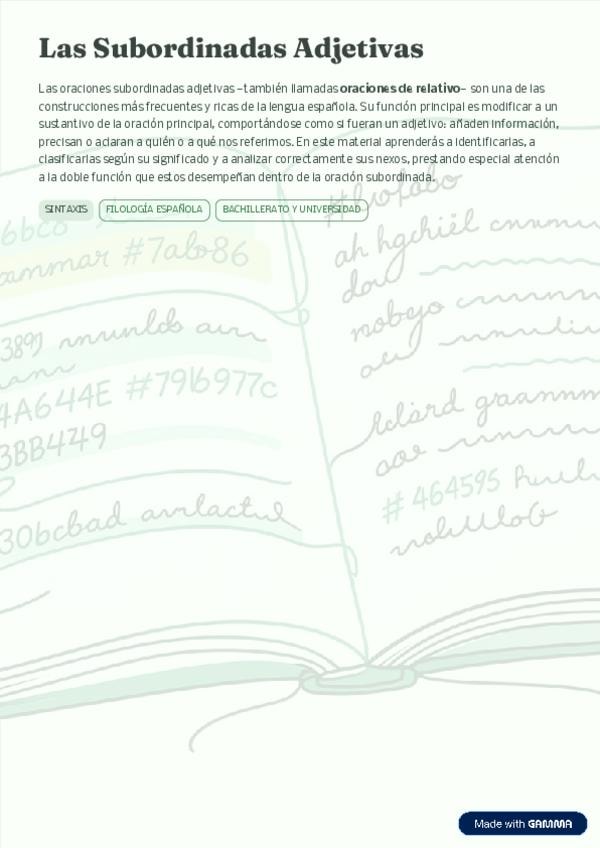 Las Subordinadas Adjetivas
Las oraciones subordinadas adjetivas –también llamadas oraciones de relativo– son una de las
construcciones más frecuentes y ricas de la lengua española. Su función principal es modificar a un
sustantivo de la oración principal, comportándose como si fueran un adjetivo: añaden información,
precisan o aclaran a quién o a qué nos referimos. En este material aprenderás a identificarlas, a
clasificarlas según su significado y a analizar correctamente sus nexos, prestando especial atención
a la doble función que estos desempeñan dentro de la oración subordinada.
SINTAXIS FILOLOGÍA ESPAÑOLA BACHILLERATO Y UNIVERSIDAD
#7ab86
4A644E #7916977c
3BB4749
# 464595
Made with GAMMA